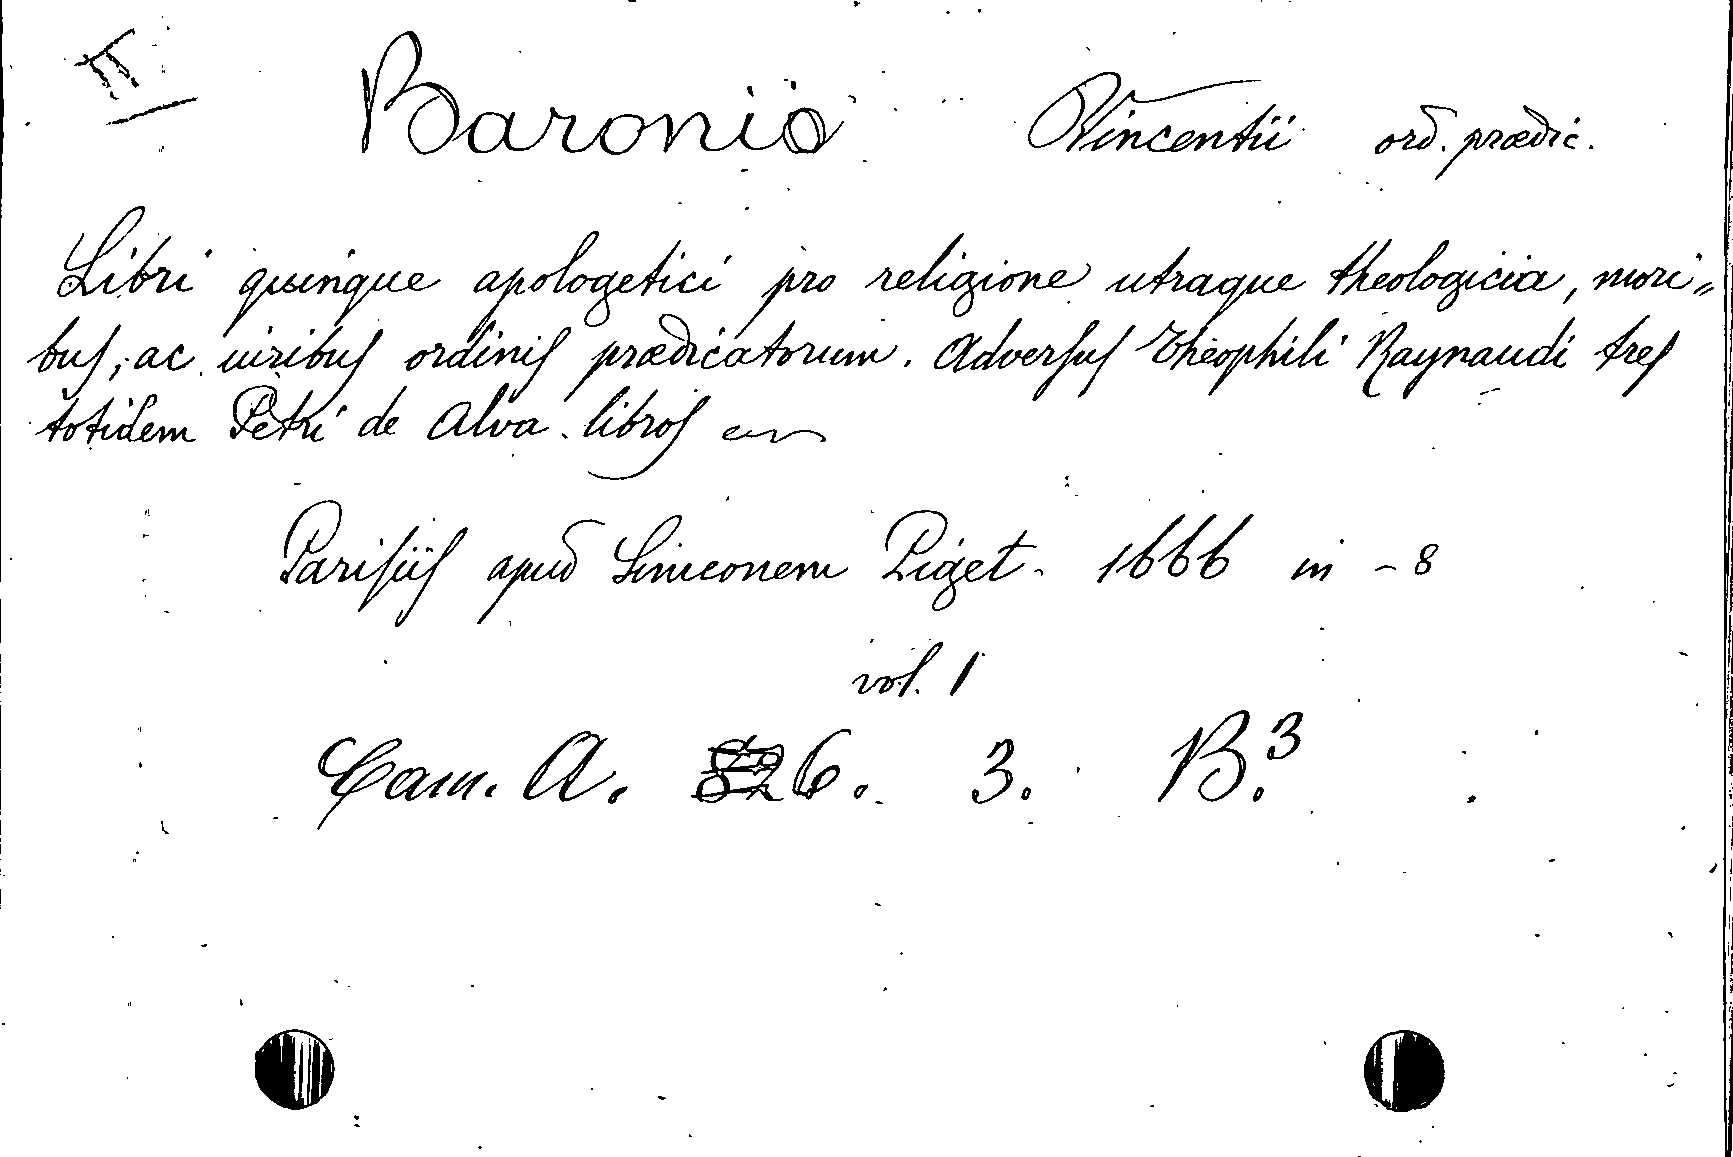 II
Baronio Vincentii ord. prædic.
Libri quinque apologetici pro religione utraque theologicia, mori„
bus, ac viribus ordinis prædicatorum. Adversus Theophili Raynaudi tres
totidem Petri de Alva. libros
Parisiis apud Simeonem Piget. 1666 in-8
vol. 1
Cam. A. 6. 3. B.³